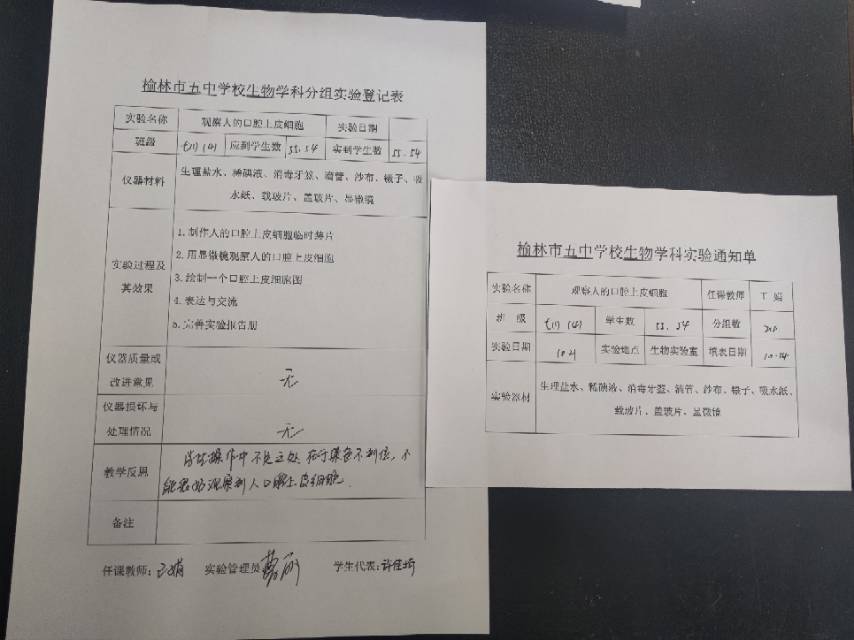 榆林市五中学校生物学科分组实验登记表
实验名称 观察人的口腔上皮细胞 实验日期
班级 七(1) (4) 应到学生数 55. 54 实到学生数 55. 54
仪器材料 生理盐水、稀碘液、消毒牙签、滴管、纱布、镊子、吸
水纸、载玻片、盖玻片、显微镜
实验过程及
其效果
1.制作人的口腔上皮细胞临时装片
2.用显微镜观察人的口腔上皮细胞
3.绘制一个口腔上皮细胞图
4.表达与交流
5.完善实验报告册
仪器质量或
改进意见 无
仪器损坏与
处理情况 无
教学反思 操作中不足之处 在于染色不到位，不
能很好观察到人口腔上皮细胞.
备注
任课教师： 实验管理员 学生代表：许佳琦
榆林市五中学校生物学科实验通知单
实验名称 观察人的口腔上皮细胞 任课教师 丁 娟
班 级 七(1) (4) 学生数 55. 54 分组数
实验日期 实验地点 生物实验室 填表日期 10.14
实验器材 生理盐水、稀碘液、消毒牙签、滴管、纱布、镊子、吸水纸、
载玻片、盖玻片、显微镜